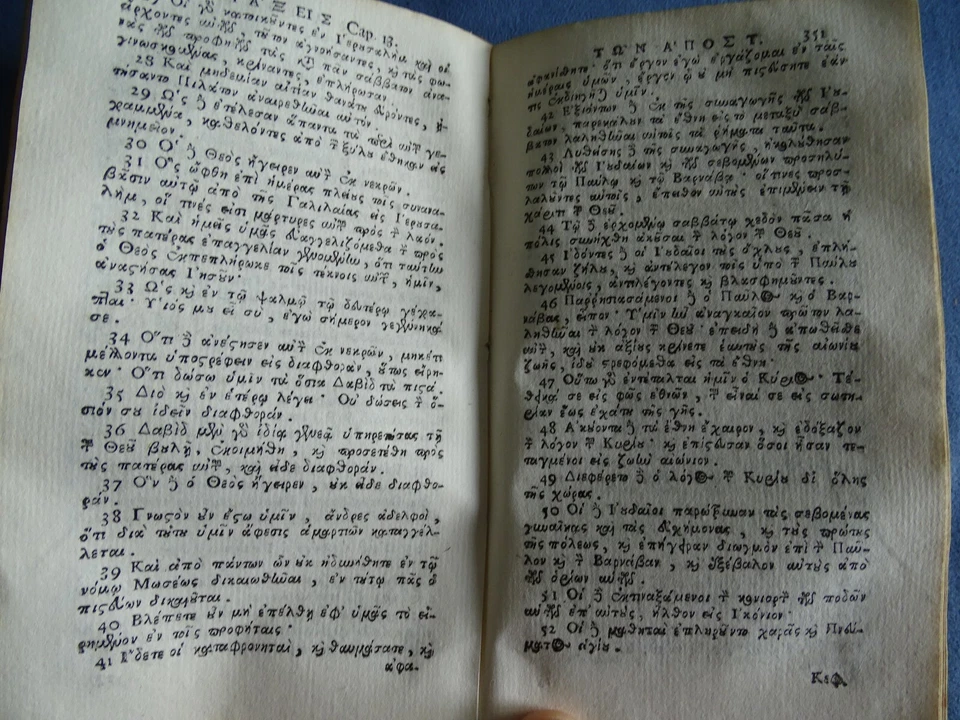 ΠΡΑΞΕΙΣ Cap. 13.
27 Οἱ γὰρ κατοικοῦντες ἐν Ἱερουσαλὴμ καὶ οἱ
ἄρχοντες αὐτῶν τοῦτον ἀγνοήσαντες, ϗ τὰς φω-
νὰς τῶν προφητῶν τὰς κατὰ πᾶν σάββατον ἀνα-
γινωσκομένας, κρίναντες, ἐπλήρωσαν.
28 Καὶ μηδεμίαν αἰτίαν θανάτου εὑρόντες, ᾐ-
τήσαντο Πιλᾶτον ἀναιρεθῆναι αὐτόν.
29 Ὡς δὲ ἐτέλεσαν ἅπαντα τὰ περὶ αὐτοῦ γε-
γραμμένα, καθελόντες ἀπὸ τοῦ ξύλου ἔθηκαν εἰς
μνημεῖον.
30 Ὁ δὲ Θεὸς ἤγειρεν αὐτὸν ἐκ νεκρῶν.
31 Ὃς ὤφθη ἐπὶ ἡμέρας πλείους τοῖς συνανα-
βᾶσιν αὐτῷ ἀπὸ τῆς Γαλιλαίας εἰς Ἱερουσα-
λήμ, οἵ τινές εἰσι μάρτυρες αὐτοῦ πρὸς τὸν λαόν.
32 Καὶ ἡμεῖς ὑμᾶς εὐαγγελιζόμεθα τὴν πρὸς
τοὺς πατέρας ἐπαγγελίαν γενομένην, ὅτι ταύτην
ὁ Θεὸς ἐκπεπλήρωκε τοῖς τέκνοις αὐτῶν, ἡμῖν,
ἀναστήσας Ἰησοῦν·
33 Ὡς ϗ ἐν τῷ ψαλμῷ τῷ δευτέρῳ γέγρα-
πται· Υἱός μου εἶ σύ, ἐγὼ σήμερον γεγέννηκά
σε.
34 Ὅτι δὲ ἀνέστησεν αὐτὸν ἐκ νεκρῶν, μηκέτι
μέλλοντα ὑποστρέφειν εἰς διαφθοράν, οὕτως εἴρη-
κεν· Ὅτι δώσω ὑμῖν τὰ ὅσια Δαβὶδ τὰ πιστά.
35 Διὸ ϗ ἐν ἑτέρῳ λέγει· Οὐ δώσεις τὸν ὅ-
σιόν σου ἰδεῖν διαφθοράν.
36 Δαβὶδ μὲν γὰρ ἰδίᾳ γενεᾷ ὑπηρετήσας τῇ
τοῦ Θεοῦ βουλῇ, ἐκοιμήθη, ϗ προσετέθη πρὸς
τοὺς πατέρας αὐτοῦ, καὶ εἶδε διαφθοράν.
37 Ὃν δὲ ὁ Θεὸς ἤγειρεν, οὐκ εἶδε διαφθο-
ράν.
38 Γνωστὸν οὖν ἔστω ὑμῖν, ἄνδρες ἀδελφοί,
ὅτι διὰ τούτου ὑμῖν ἄφεσις ἁμαρτιῶν καταγγέλ-
λεται.
39 Καὶ ἀπὸ πάντων ὧν οὐκ ἠδυνήθητε ἐν τῷ
νόμῳ Μωσέως δικαιωθῆναι, ἐν τούτῳ πᾶς ὁ
πιστεύων δικαιοῦται.
40 Βλέπετε οὖν μὴ ἐπέλθῃ ἐφ' ὑμᾶς τὸ εἰ-
ρημένον ἐν τοῖς προφήταις·
41 Ἴδετε οἱ καταφρονηταί, ϗ θαυμάσατε, ϗ
ἀφα-
ΤΩΝ ΑΠΟΣΤ. 351
ἀφανίσθητε· ὅτι ἔργον ἐγὼ ἐργάζομαι ἐν ταῖς
ἡμέραις ὑμῶν, ἔργον ᾧ οὐ μὴ πιστεύσητε ἐάν
τις ἐκδιηγῆται ὑμῖν.
42 Ἐξιόντων δὲ ἐκ τῆς συναγωγῆς τῶν Ἰου-
δαίων, παρεκάλουν τὰ ἔθνη εἰς τὸ μεταξὺ σάβ-
βατον λαληθῆναι αὐτοῖς τὰ ῥήματα ταῦτα.
43 Λυθείσης δὲ τῆς συναγωγῆς, ἠκολούθησαν
πολλοὶ τῶν Ἰουδαίων ϗ τῶν σεβομένων προσηλύ-
των τῷ Παύλῳ ϗ τῷ Βαρνάβᾳ· οἵ τινες προσ-
λαλοῦντες αὐτοῖς, ἔπειθον αὐτοὺς ἐπιμένειν τῇ
χάριτι τοῦ Θεοῦ.
44 Τῷ δὲ ἐρχομένῳ σαββάτῳ σχεδὸν πᾶσα ἡ
πόλις συνήχθη ἀκοῦσαι τὸν λόγον τοῦ Θεοῦ.
45 Ἰδόντες δὲ οἱ Ἰουδαῖοι τοὺς ὄχλους, ἐπλή-
σθησαν ζήλου, ϗ ἀντέλεγον τοῖς ὑπὸ τοῦ Παύλου
λεγομένοις, ἀντιλέγοντες ϗ βλασφημοῦντες.
46 Παρρησιασάμενοι δὲ ὁ Παῦλος ϗ ὁ Βαρ-
νάβας, εἶπον· Ὑμῖν ἦν ἀναγκαῖον πρῶτον λα-
ληθῆναι τὸν λόγον τοῦ Θεοῦ· ἐπειδὴ δὲ ἀπωθεῖσθε
αὐτόν, καὶ οὐκ ἀξίους κρίνετε ἑαυτοὺς τῆς αἰωνίου
ζωῆς, ἰδοὺ στρεφόμεθα εἰς τὰ ἔθνη·
47 Οὕτω γὰρ ἐντέταλται ἡμῖν ὁ Κύριος· Τέ-
θεικά σε εἰς φῶς ἐθνῶν, τοῦ εἶναί σε εἰς σωτη-
ρίαν ἕως ἐσχάτου τῆς γῆς.
48 Ἀκούοντα δὲ τὰ ἔθνη ἔχαιρον, ϗ ἐδόξαζον
τὸν λόγον τοῦ Κυρίου· ϗ ἐπίστευσαν ὅσοι ἦσαν τε-
ταγμένοι εἰς ζωὴν αἰώνιον.
49 Διεφέρετο δὲ ὁ λόγος τοῦ Κυρίου δι' ὅλης
τῆς χώρας.
50 Οἱ δὲ Ἰουδαῖοι παρώξυναν τὰς σεβομένας
γυναῖκας καὶ τὰς εὐσχήμονας, ϗ τοὺς πρώτους
τῆς πόλεως, ϗ ἐπήγειραν διωγμὸν ἐπὶ τὸν Παῦ-
λον ϗ τὸν Βαρνάβαν, ϗ ἐξέβαλον αὐτοὺς ἀπὸ
τῶν ὁρίων αὐτῶν.
51 Οἱ δὲ ἐκτιναξάμενοι τὸν κονιορτὸν τῶν ποδῶν
αὐτῶν ἐπ' αὐτούς, ἦλθον εἰς Ἰκόνιον·
52 Οἱ δὲ μαθηταὶ ἐπληροῦντο χαρᾶς ϗ Πνεύ-
ματος ἁγίου.
Κεφ.